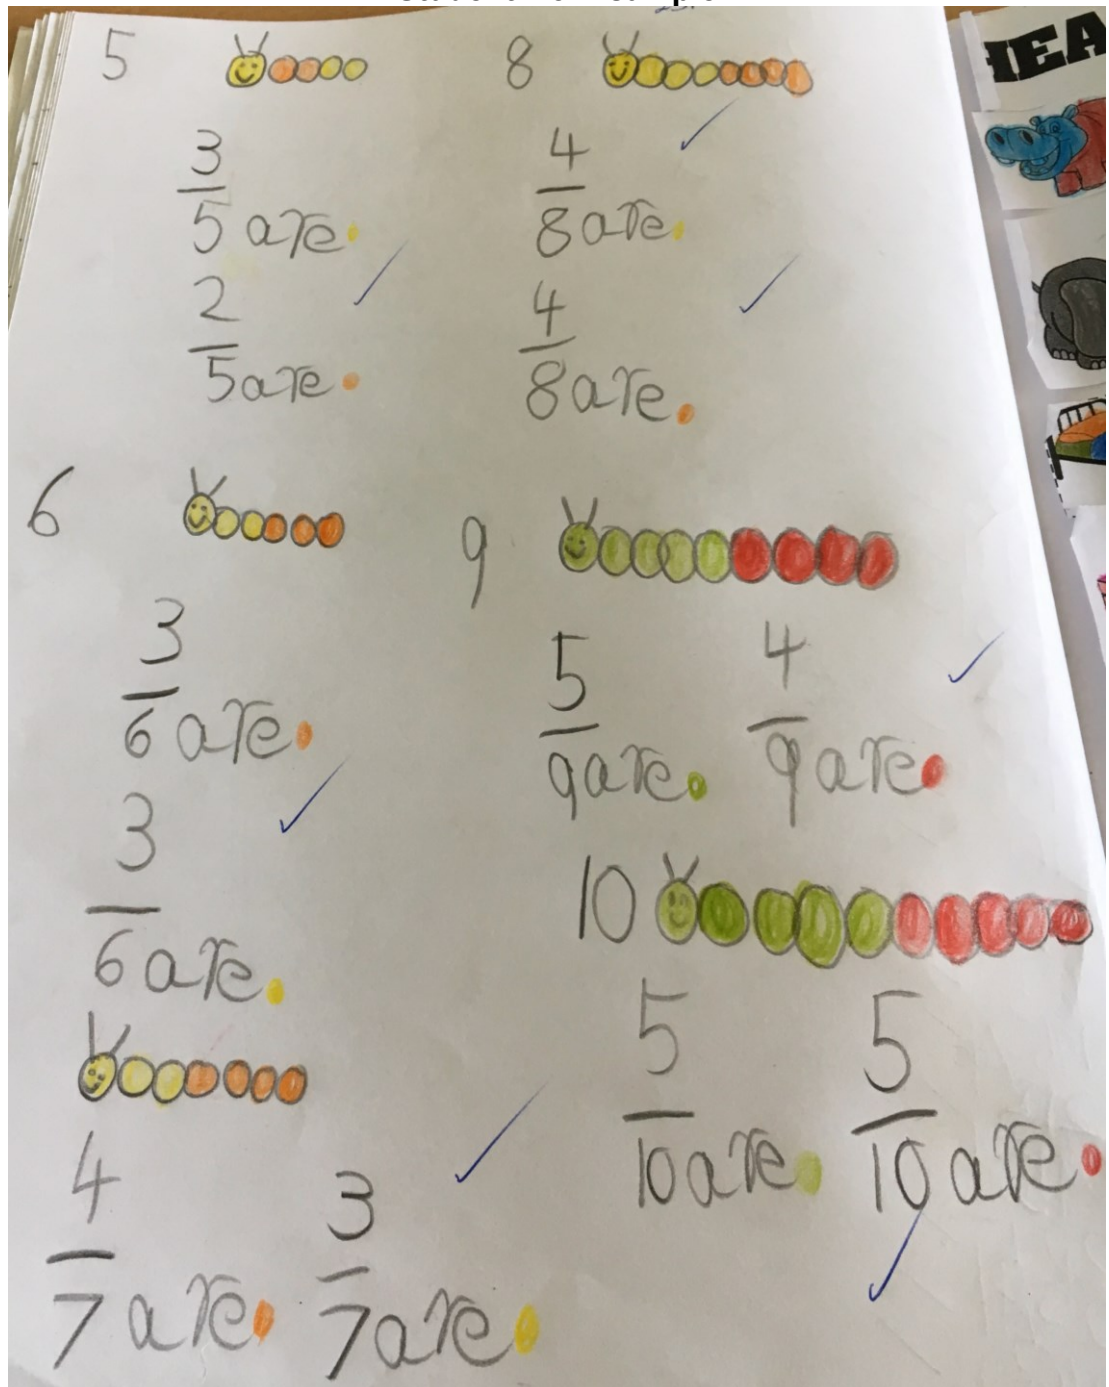 5
3
5 are
2
5 are
8
4
8 are
4
8 are
6
3
6 are
3
6 are
4
7 are
3
7 are
9
5
9 are
4
9 are
10
5
10 are
5
10 are
HEA